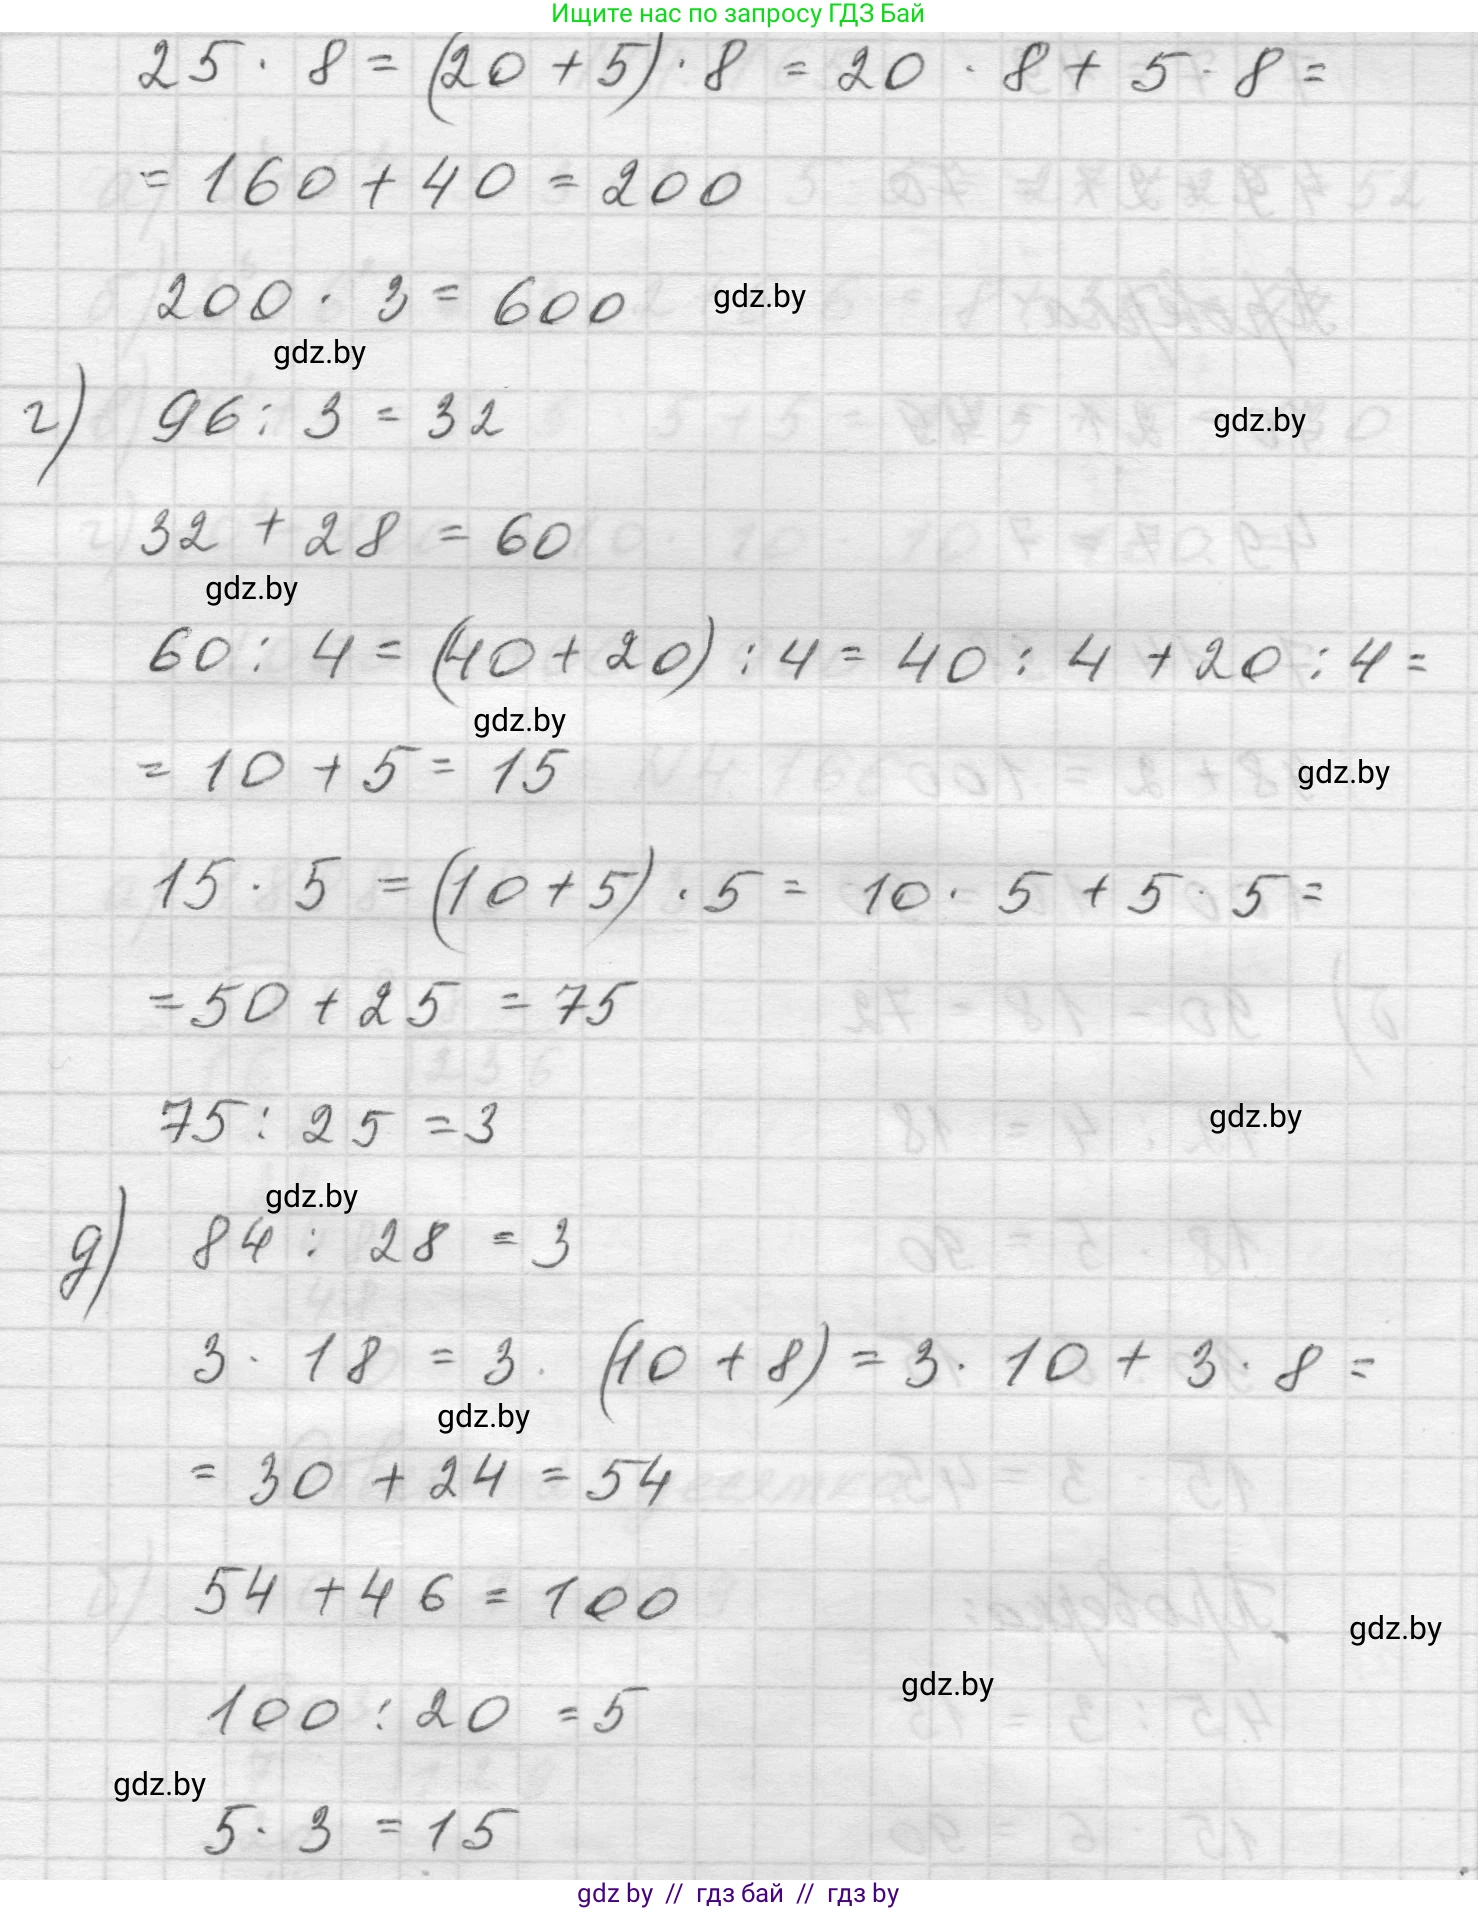 Ищите нас по запросу ГДЗ Бай
25 · 8 = (20 + 5) · 8 = 20 · 8 + 5 · 8 =
= 160 + 40 = 200
200 · 3 = 600
gdz.by
gdz.by
г) 96 : 3 = 32
gdz.by
32 + 28 = 60
gdz.by
60 : 4 = (40 + 20) : 4 = 40 : 4 + 20 : 4 =
gdz.by
= 10 + 5 = 15
gdz.by
15 · 5 = (10 + 5) · 5 = 10 · 5 + 5 · 5 =
= 50 + 25 = 75
75 : 25 = 3
gdz.by
gdz.by
д) 84 : 28 = 3
3 · 18 = 3 · (10 + 8) = 3 · 10 + 3 · 8 =
gdz.by
= 30 + 24 = 54
54 + 46 = 100
gdz.by
gdz.by
100 : 20 = 5
gdz.by
5 · 3 = 15
gdz by // гдз бай // гдз by